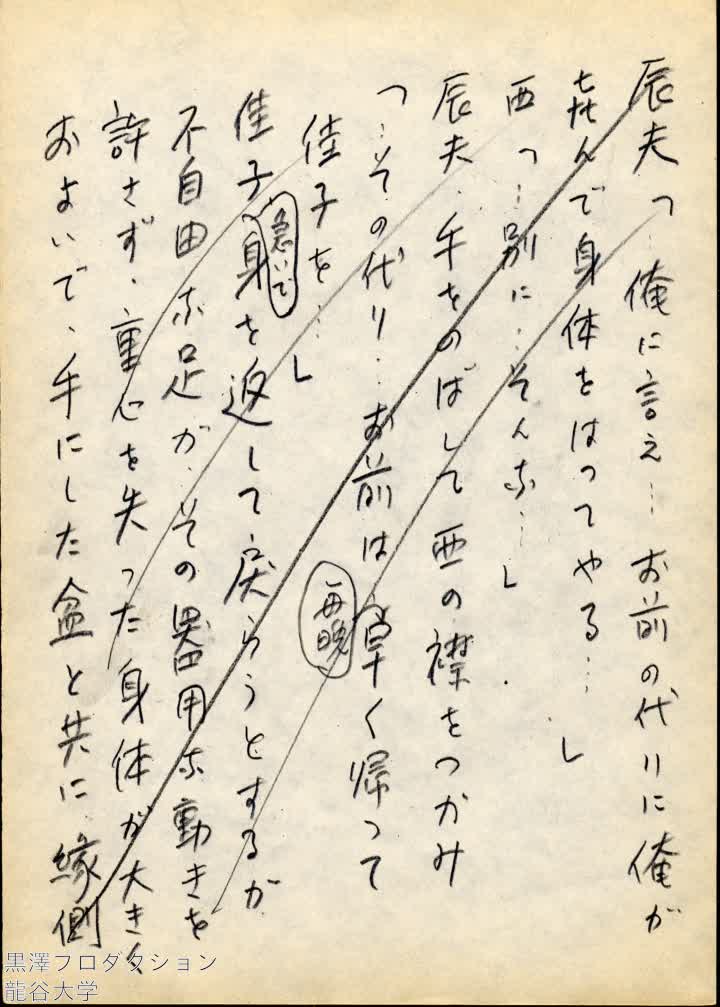 辰夫「俺に言え…お前の代りに俺が
喜んで身体をはってやる…」
西「…別に…そんな…」
辰夫、手をのばして西の襟をつかみ
「…その代り…お前は早く帰って
佳子を…」
佳子、身を返して戻らうとするが
急いで
不自由な足が、その器用な動きを
許さず、重心を失った身体が大きく
およいで、手にした盆と共に縁側
黒澤プロダクション
龍谷大学